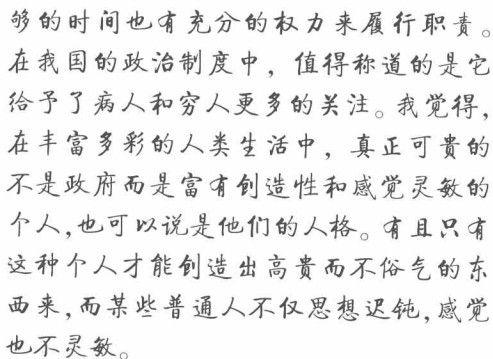 够的时间也有充分的权力来履行职责。
在我国的政治制度中，值得称道的是它
给予了病人和穷人更多的关注。我觉得，
在丰富多彩的人类生活中，真正可贵的
不是政府而是富有创造性和感觉灵敏的
个人，也可以说是他们的人格。有且只有
这种个人才能创造出高贵而不俗气的东
西来，而某些普通人不仅思想迟钝，感觉
也不灵敏。